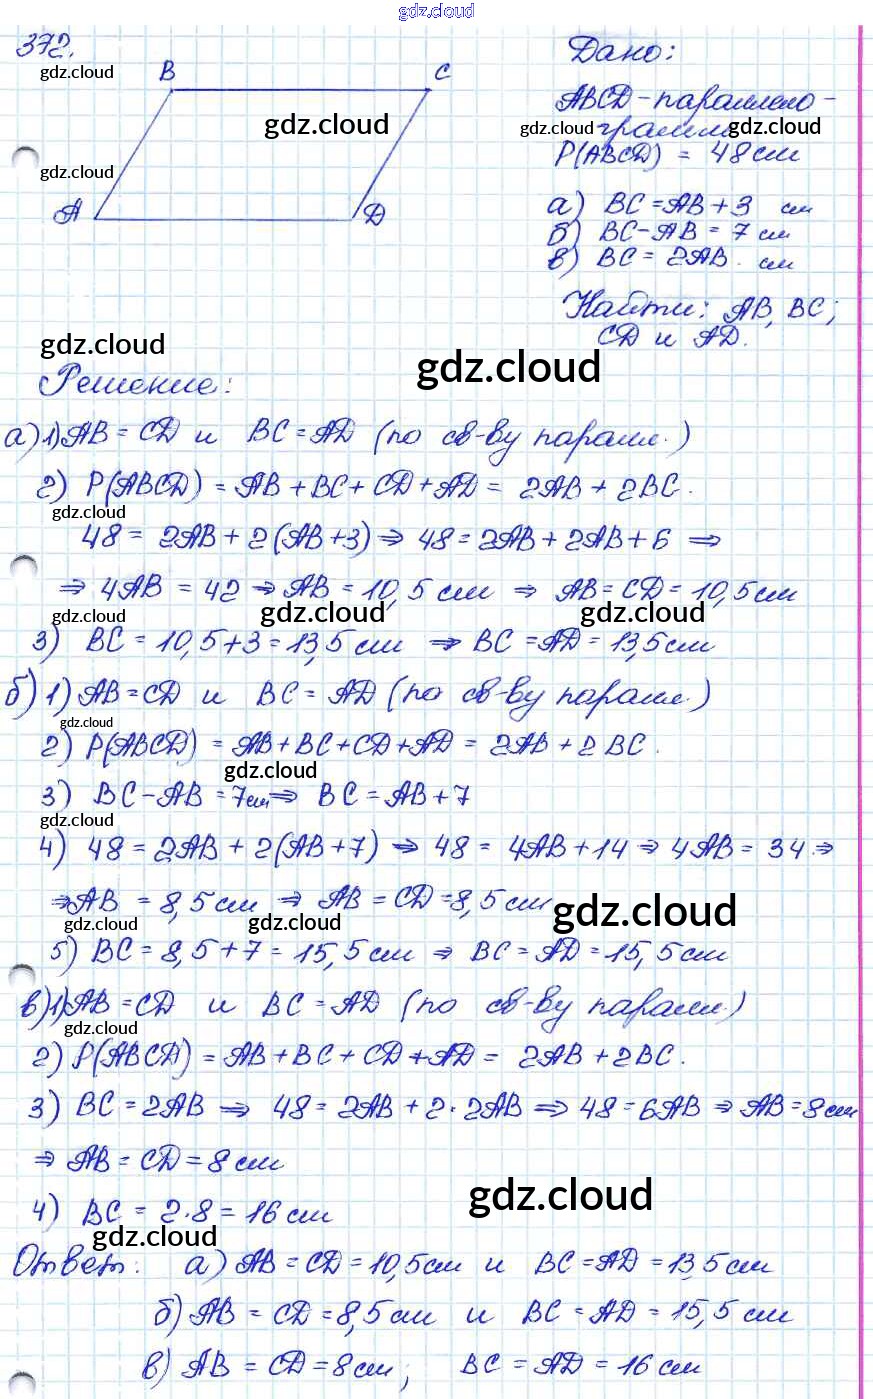 gdz.cloud
372.
gdz.cloud
B C
gdz.cloud
gdz.cloud
A D
Дано:
ABCD - параллело-
грамм
gdz.cloud gdz.cloud
P(ABCD) = 48 см
а) BC = AB + 3 см
б) BC - AB = 7 см
в) BC = 2AB. см
Найти: AB, BC;
CD и AD.
gdz.cloud
gdz.cloud
Решение:
а) 1) AB = CD и BC = AD (по св-ву паралл.)
2) P(ABCD) = AB + BC + CD + AD = 2AB + 2BC.
gdz.cloud
48 = 2AB + 2(AB + 3) ⇒ 48 = 2AB + 2AB + 6 ⇒
⇒ 4AB = 42 ⇒ AB = 10,5 см ⇒ AB = CD = 10,5 см
gdz.cloud gdz.cloud gdz.cloud
3) BC = 10,5 + 3 = 13,5 см ⇒ BC = AD = 13,5 см
б) 1) AB = CD и BC = AD (по св-ву паралл.)
gdz.cloud
2) P(ABCD) = AB + BC + CD + AD = 2AB + 2BC.
gdz.cloud
3) BC - AB = 7см ⇒ BC = AB + 7
gdz.cloud
4) 48 = 2AB + 2(AB + 7) ⇒ 48 = 4AB + 14 ⇒ 4AB = 34 ⇒
⇒ AB = 8,5 см ⇒ AB = CD = 8,5 см
gdz.cloud gdz.cloud gdz.cloud
5) BC = 8,5 + 7 = 15,5 см ⇒ BC = AD = 15,5 см
в) 1) AB = CD и BC = AD (по св-ву паралл.)
gdz.cloud
2) P(ABCD) = AB + BC + CD + AD = 2AB + 2BC.
3) BC = 2AB ⇒ 48 = 2AB + 2·2AB ⇒ 48 = 6AB ⇒ AB = 8 см
⇒ AB = CD = 8 см
gdz.cloud
4) BC = 2·8 = 16 см
gdz.cloud
Ответ: а) AB = CD = 10,5 см и BC = AD = 13,5 см
б) AB = CD = 8,5 см и BC = AD = 15,5 см
в) AB = CD = 8 см; BC = AD = 16 см